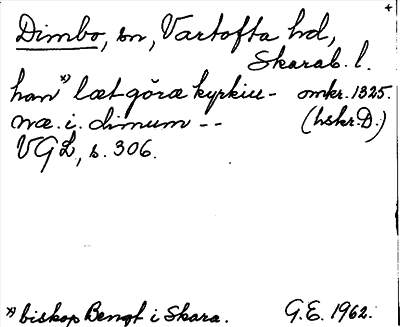 +
Dimbo, sn, Vartofta hd,
Skarab. l.
han *) læt göræ kyrkiu- omkr. 1325.
næ. i. dimum -- (hskr. D.)
VGL, s. 306.
*) biskop Bengt i Skara. G.E. 1962.